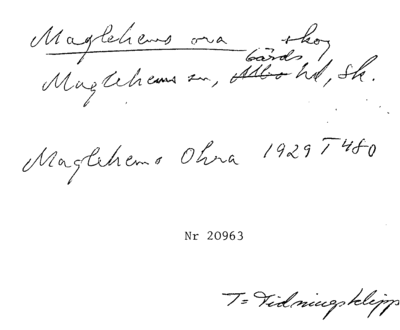 Maglehems ora skog
Maglehems sn, Gärds hd, Sk.
Maglehems Ohra 1929 T 480
Nr 20963
T = Tidningsklipp